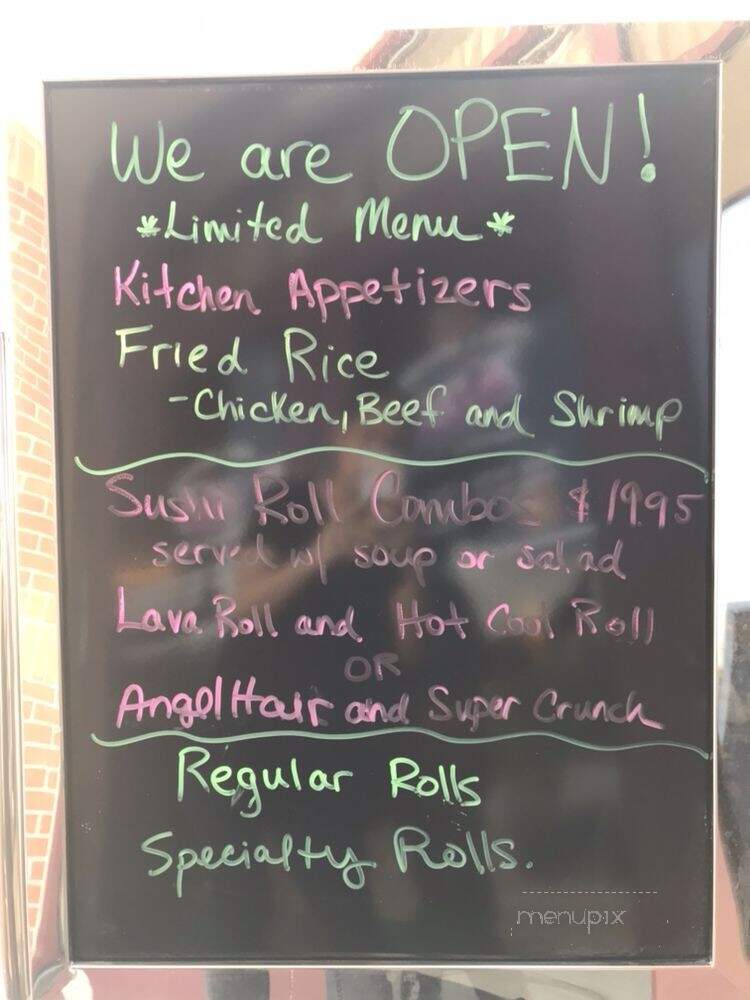 We are OPEN!
*Limited Menu*
Kitchen Appetizers
Fried Rice
-Chicken, Beef and Shrimp
Sushi Roll Combos $19.95
served w/ soup or salad
Lava Roll and Hot Cool Roll
OR
Angel Hair and Super Crunch
Regular Rolls
Specialty Rolls.
menupix